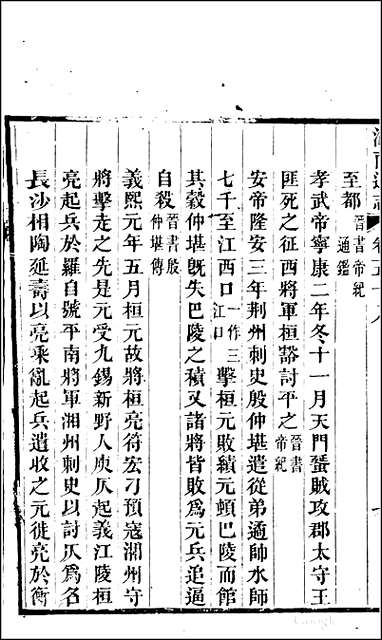 至都晉書帝紀通鑑
孝武帝寧康二年冬十一月天門蜑賊攻郡太守王
匪死之征西將軍桓豁討平之晉書帝紀
安帝隆安三年荆州刺史殷仲堪遣從弟遹帥水師
七千至江西口一作三江口擊桓元敗績元頓巴陵而館
其穀仲堪旣失巴陵之積又諸將皆敗爲元兵追逼
自殺晉書殷仲堪傳
義熙元年五月桓元故將桓亮符宏刁預寇湘州守
將擊走之先是元受九錫新野人庾仄起義江陵桓
亮起兵於羅自號平南將軍湘州刺史以討仄爲名
長沙相陶延壽以亮乘亂起兵遣收之元徙亮於衡